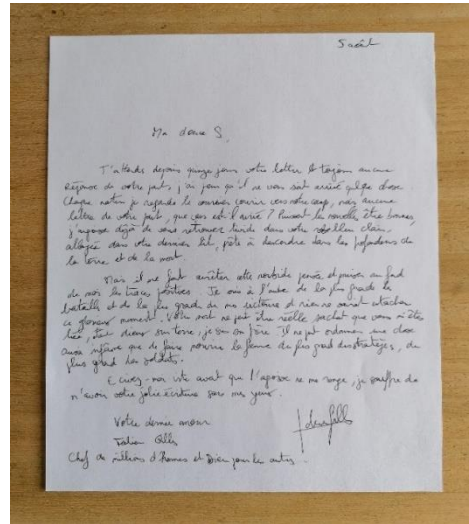 5 août
Ma douce S.
J'attends depuis quinze jours votre lettre et toujours aucune
réponse de votre part, j'ai peur qu'il ne vous soit arrivé quelque chose
Chaque matin je regarde le courrier courir vers notre camp, mais aucune
lettre de votre part, que vous est-il arrivé ? Puissent les nouvelles être bonnes,
j'angoisse déjà de vous retrouver dans votre clair,
allongée dans votre dernier lit, prête à descendre dans les profondeurs de
la terre et de la mort.
Mais il me faut arrêter cette morbide pensée et puiser au fond
de moi les traces positives. Je suis à l'aube de la plus grande de
batailles et de la plus grande de mes victoires et rien ne saurait entacher
ce glorieux moment. Votre mort ne peut être réelle sachant que vous m'êtes
liée, moi dieu sur terre, je suis Il ne peut ordonner une chose
aussi infâme que de faire mourir la femme du plus grand des stratèges, du
plus grand des soldats.
Ecrivez-moi vite avant que l'angoisse ne me ronge, je souffre de
n'avoir votre jolie écriture sous mes yeux.
Votre dernier amour
Chef de millions d'hommes et Dieu pour les autres.